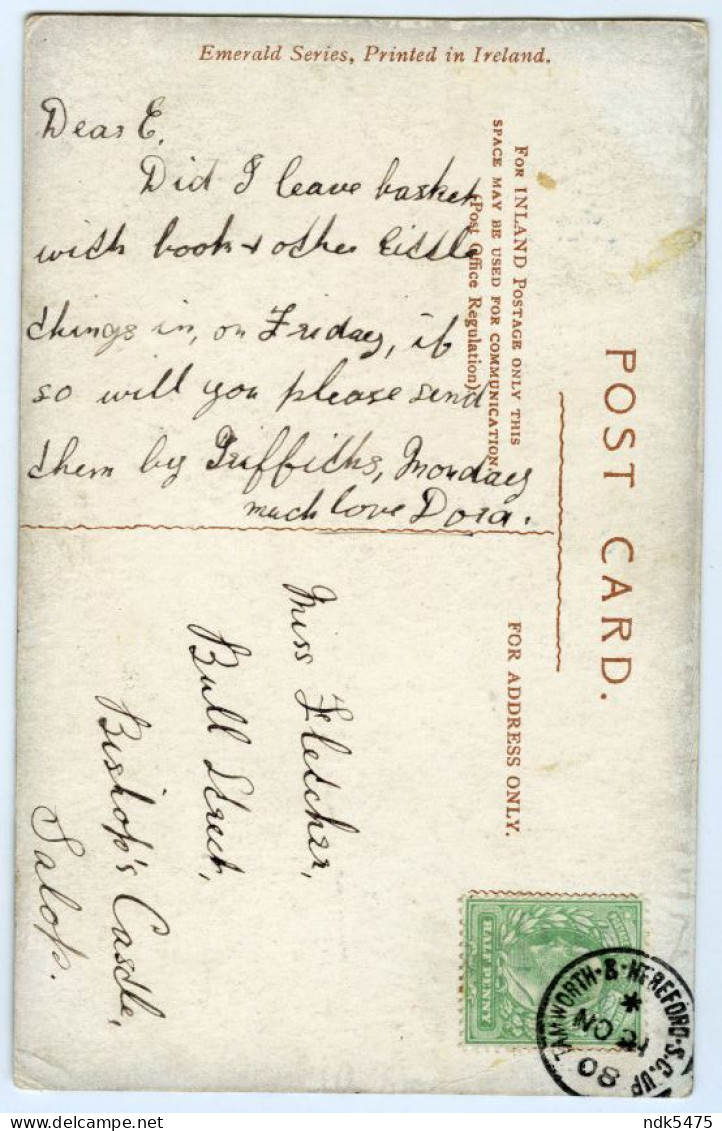 Emerald Series, Printed in Ireland.
Dear E,
Did I leave basket
with book & other little
things in, on Friday, if
so will you please send
them by Griffiths, Monday
much love Dora.
FOR INLAND POSTAGE ONLY THIS
SPACE MAY BE USED FOR COMMUNICATION
(Post Office Regulation)
POST CARD.
FOR ADDRESS ONLY.
Miss Fletcher,
Bull Street,
Bishop's Castle,
Salop.
HALF PENNY
TAMWORTH & HEREFORD S.C. UP
ndk5475